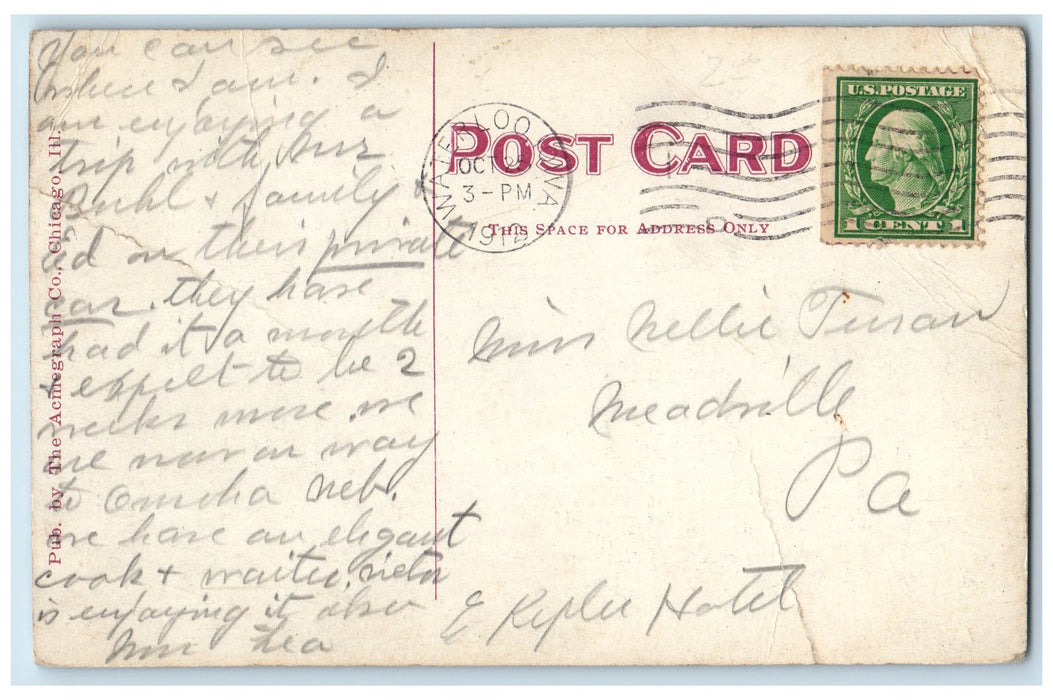 You can see
where I am. I
am enjoying a
trip with Mrs
Buhl & family
on their private
car. they have
had it a month
& expect to be 2
weeks more. we
are now on way
to Omaha Neb.
we have an elegant
cook & waiter.
is enjoying it also
Mrs Lea
Pub. by The Acmegraph Co., Chicago, Ill.
POST CARD
THIS SPACE FOR ADDRESS ONLY
WATERLOO IOWA
OCT
3-PM
1912
U.S. POSTAGE
1 CENT 1
Miss Nellie
Meadville
Pa
Kepler Hotel